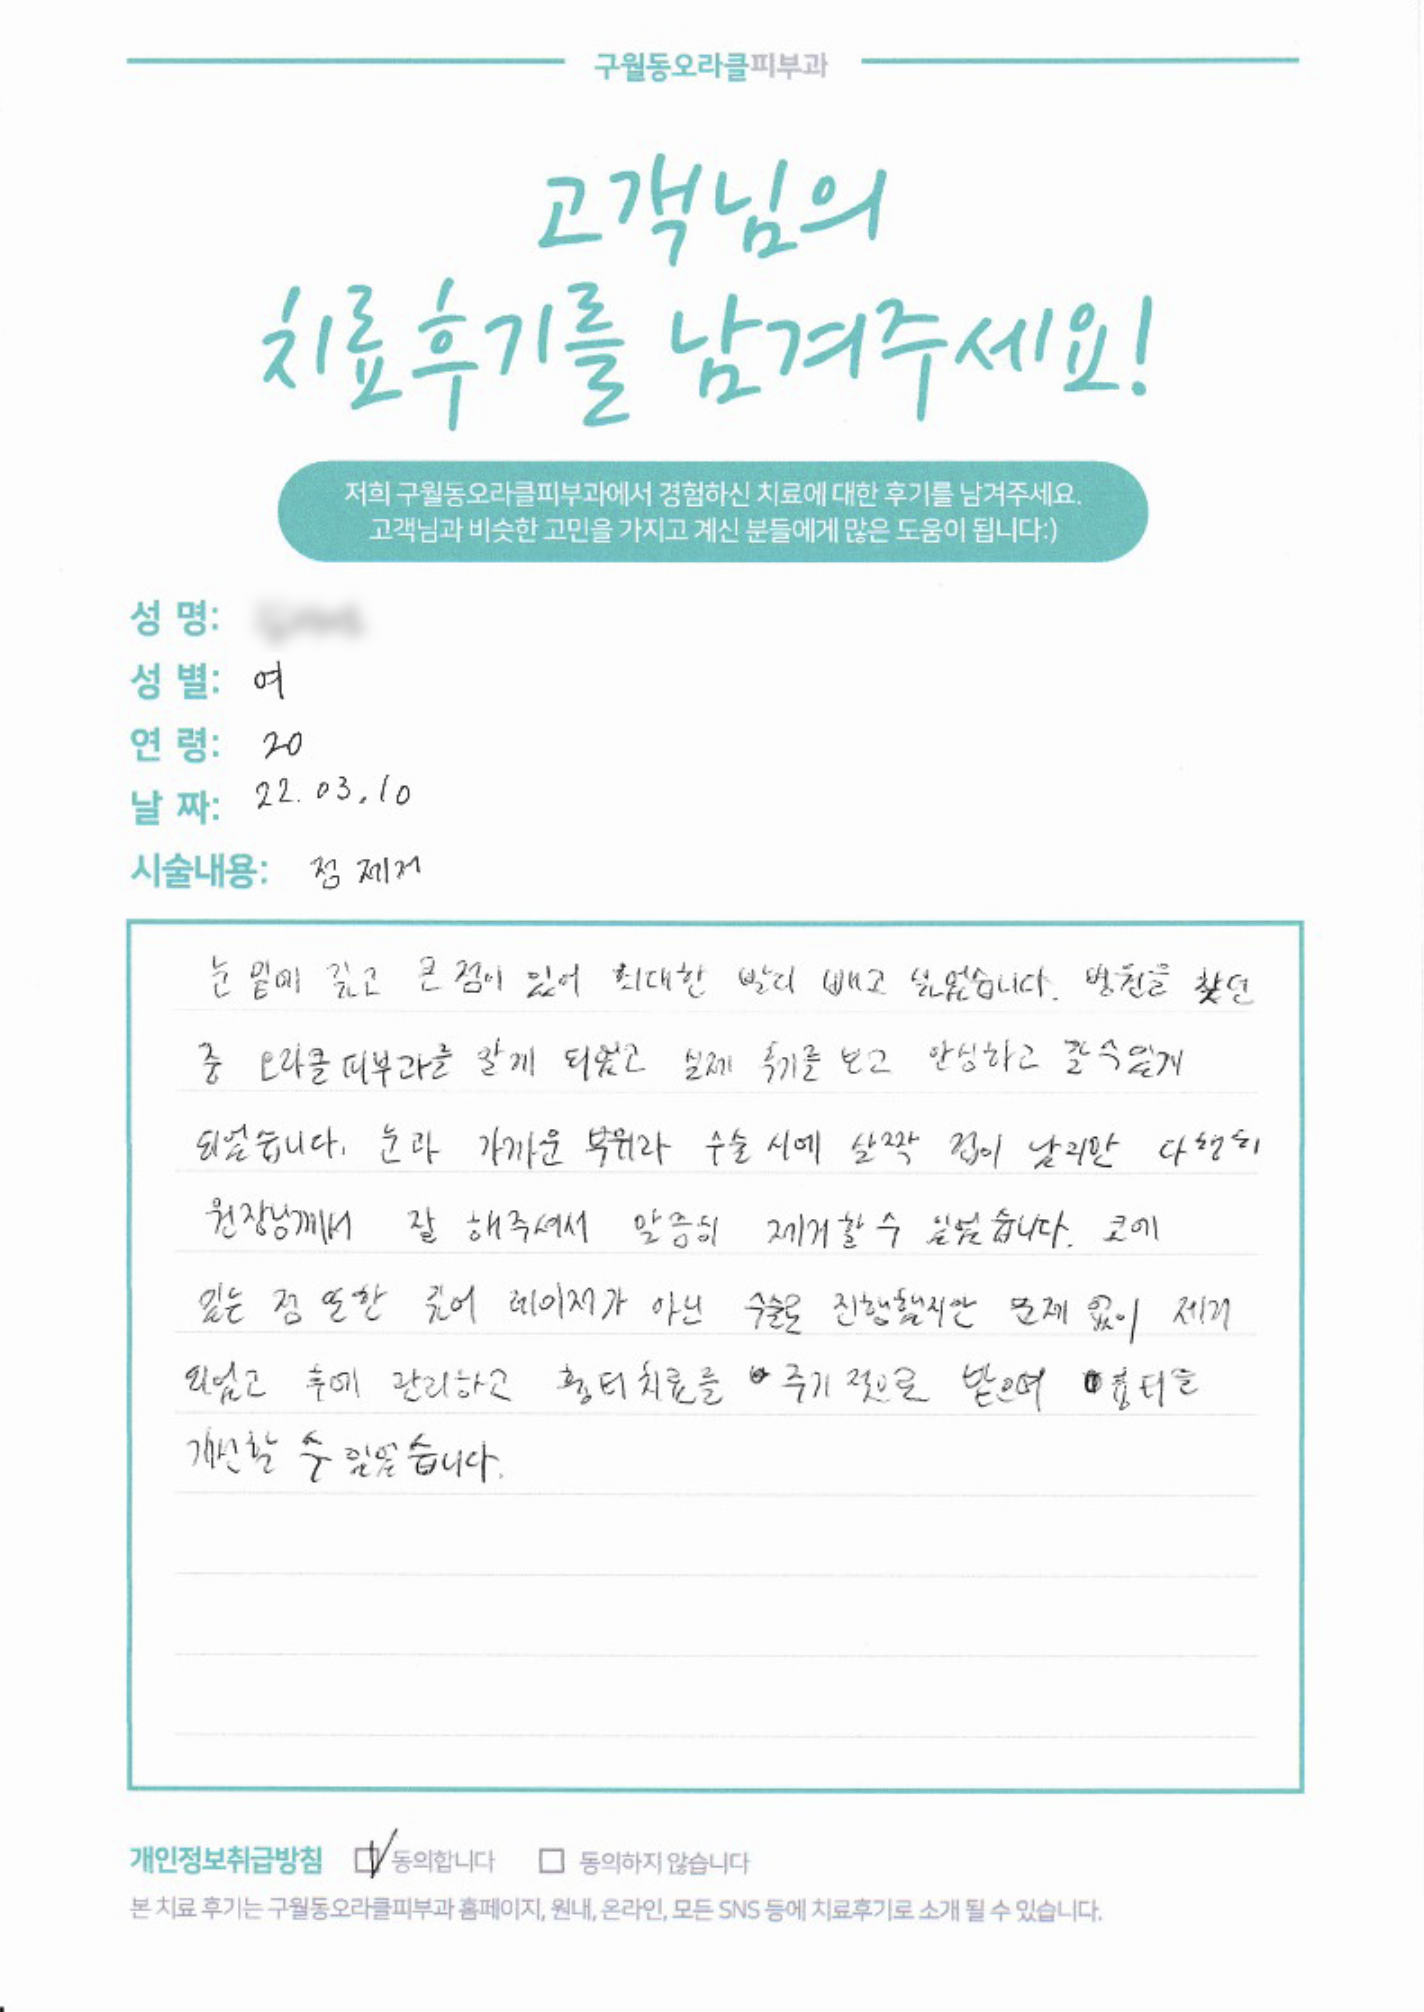 구월동오라클피부과
고객님의
치료후기를 남겨주세요!
저희 구월동오라클피부과에서 경험하신 치료에 대한 후기를 남겨주세요.
고객님과 비슷한 고민을 가지고 계신 분들에게 많은 도움이 됩니다:)
성 명:
성 별: 여
연 령: 20
날 짜: 22.03.10
시술내용: 점 제거
눈 밑에 깊고 큰 점이 있어 최대한 빨리 빼고 싶었습니다. 병원을 찾던
중 오라클 피부과를 알게 되었고 실제 후기를 보고 안심하고 갈 수 있게
되었습니다. 눈과 가까운 부위라 수술 시에 살짝 겁이 났지만 다행히
원장님께서 잘 해주셔서 말끔히 제거할 수 있었습니다. 코에
있는 점 또한 깊어 레이저가 아닌 수술로 진행했지만 문제 없이 제거
되었고 후에 관리하고 흉터치료를 주기적으로 받으며 흉터를
개선할 수 있었습니다.
개인정보취급방침 동의합니다 동의하지 않습니다
본 치료 후기는 구월동오라클피부과 홈페이지, 원내, 온라인, 모든 SNS 등에 치료후기로 소개 될 수 있습니다.